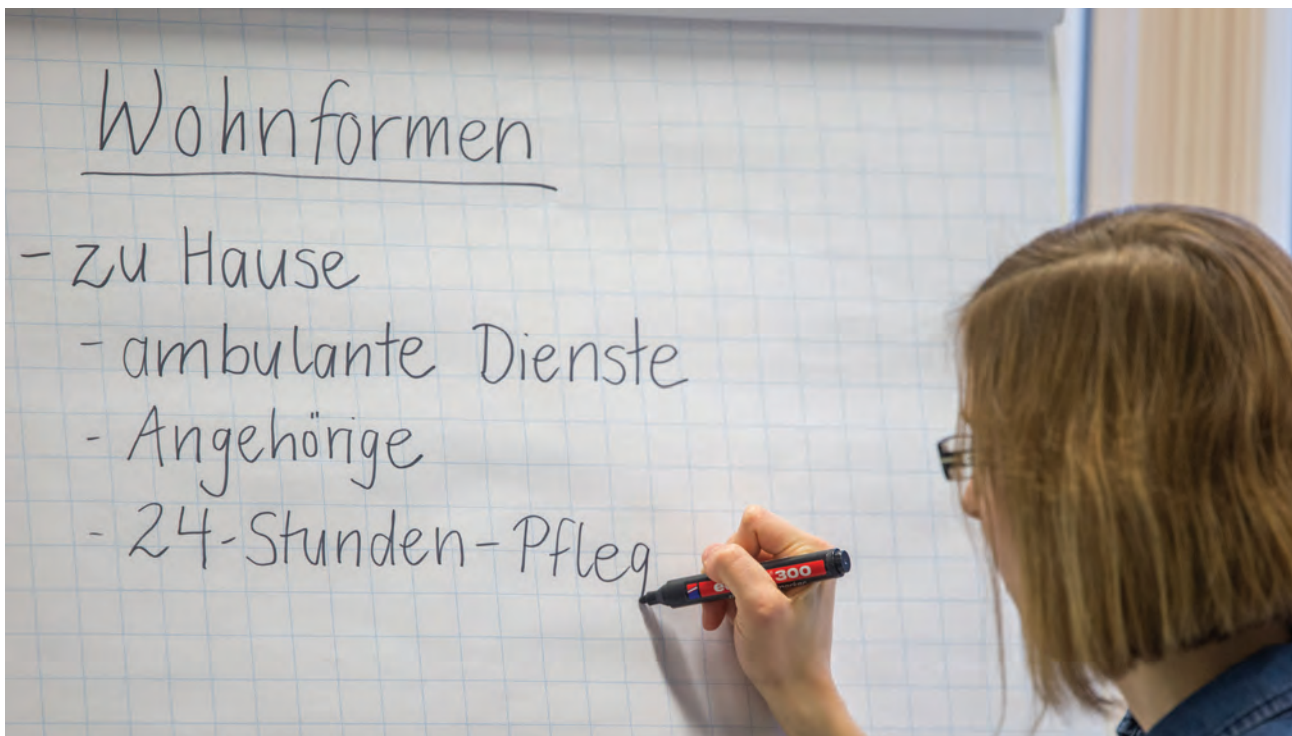 Wohnformen
- zu Hause
- ambulante Dienste
- Angehörige
- 24-Stunden-Pfleg
300